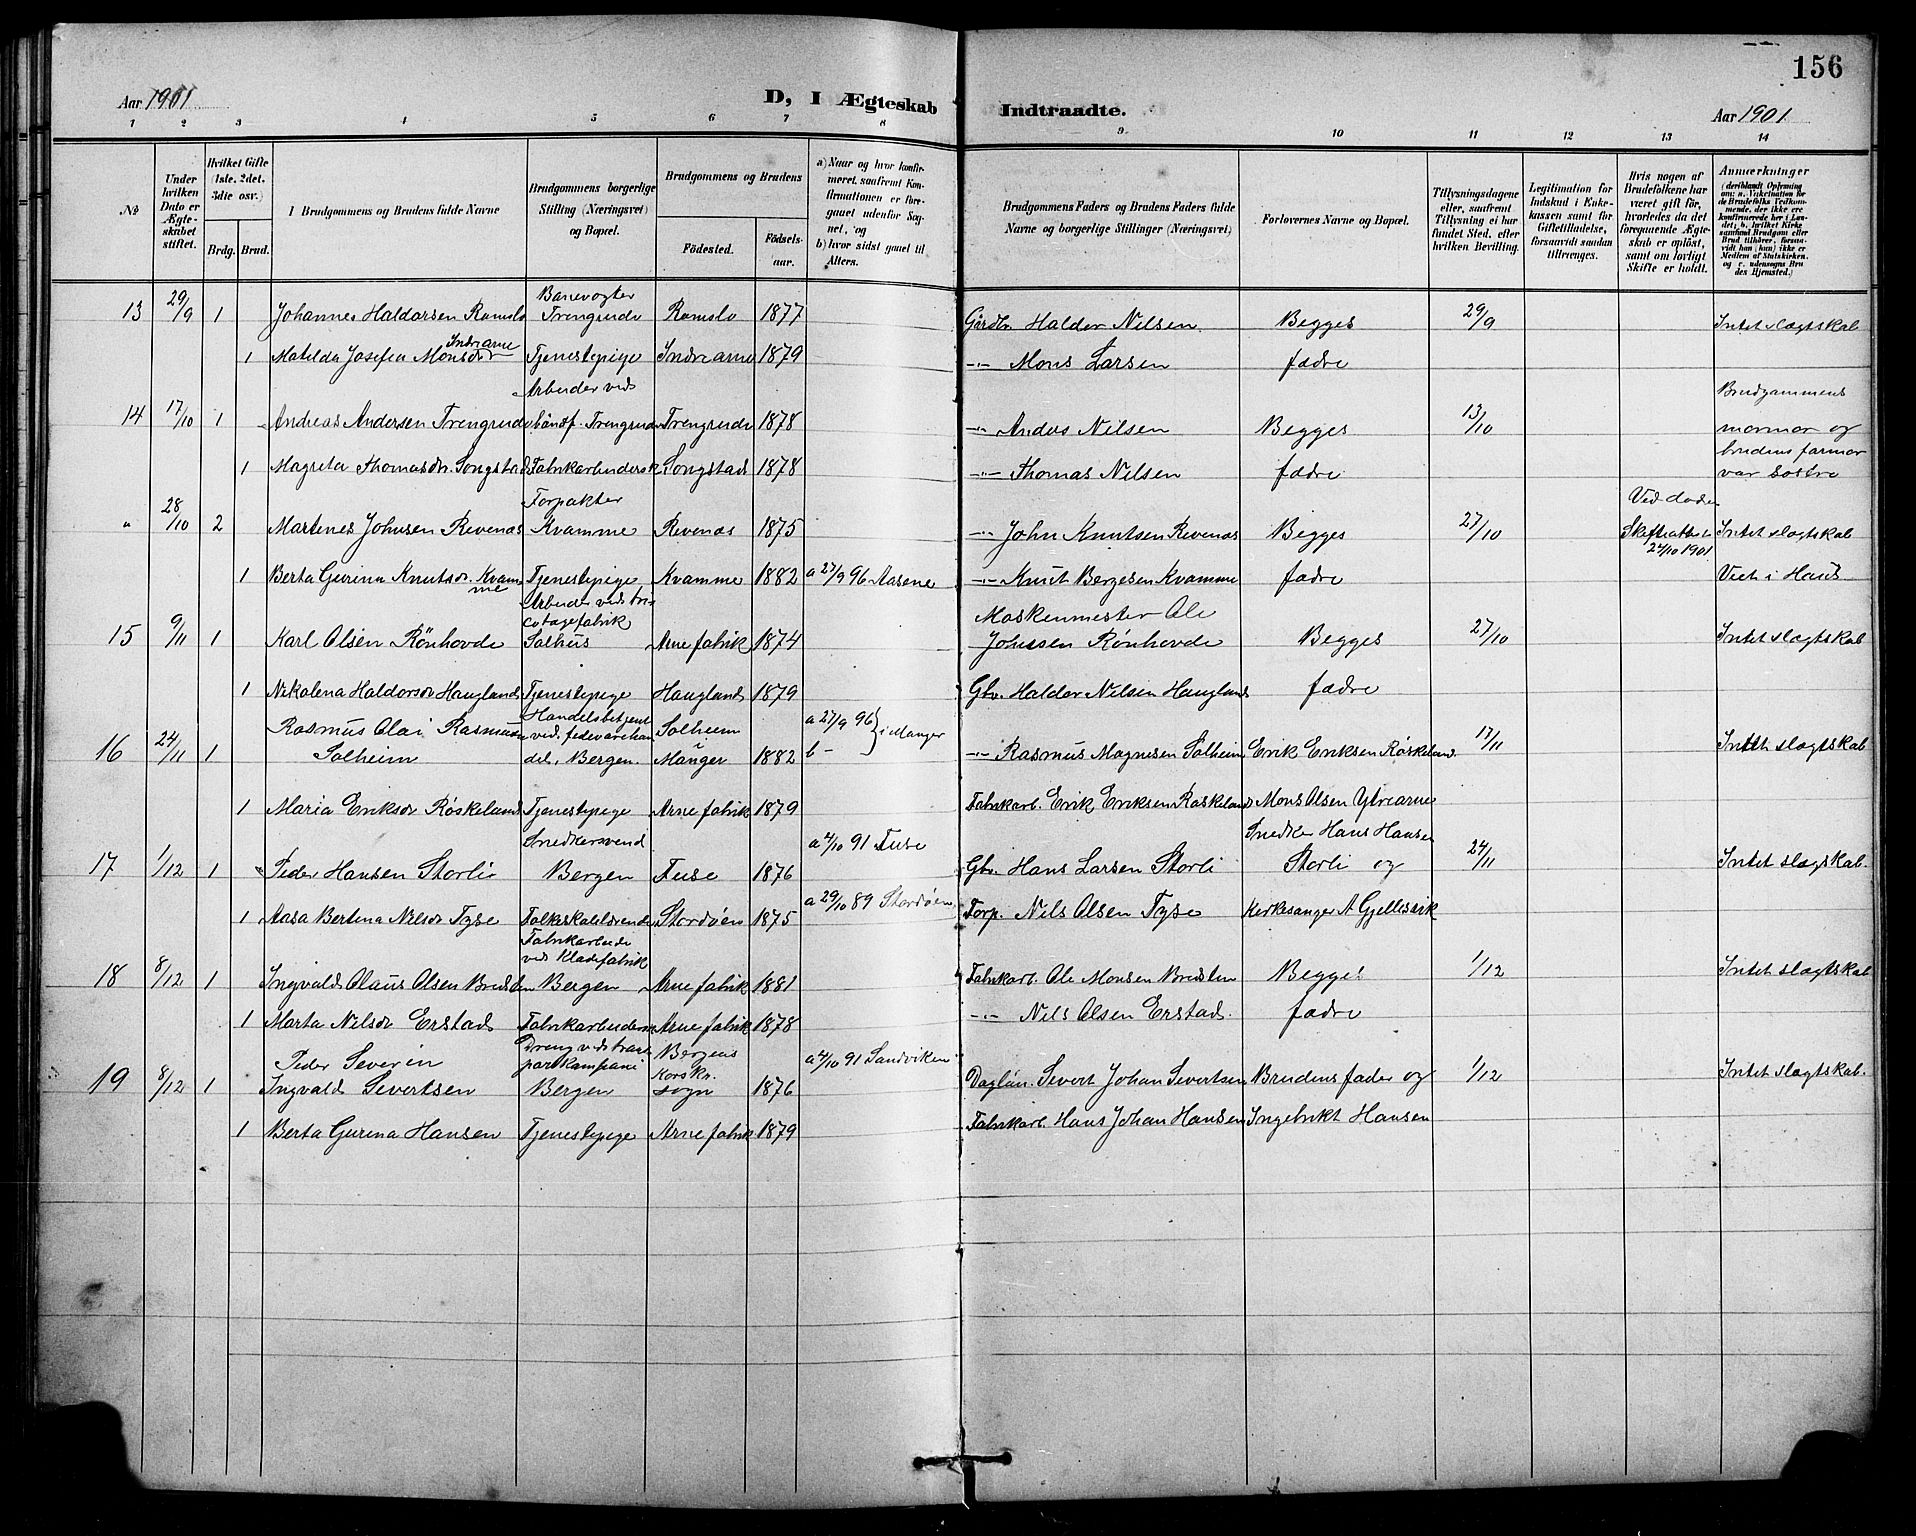 156
Aar 1901 D, I Ægteskab Indtraadte. Aar 1901
1 2 3 4 5 6 7 8 9 10 11 12 13 14
№
Under hvilken Dato er Ægteskabet stiftet.
Hvilket Gifte (1ste, 2det, 3die osv.)
Brdg. Brud.
I Brudgommens og Brudens fulde Navne
Brudgommens borgerlige Stilling (Næringsvei) og Bopæl.
Brudgommens og Brudens
Fødested. Fødsels-aar.
a) Naar og hvor konfirmeret, saafremt Konfirmationen er foregaaet udenfor Sognet, og
b) hvor sidst gaaet til Alters.
Brudgommens Faders og Brudens Faders fulde Navne og borgerlige Stillinger (Næringsvei)
Forlovernes Navne og Bopæl.
Tillysningsdagene eller, saafremt Tillysning ei har fundet Sted, efter hvilken Bevilling.
Legitimation for Indskud i Enkekassen samt for Giftetilladelse, forsaavidt saadan tiltrænges.
Hvis nogen af Brudefolkene har været gift før, hvorledes da det foregaaende Ægteskab er opløst, samt om lovligt Skifte er holdt.
Anmærkninger
13 29/9 1 Johannes Haldorsen Romslo Banevogter Trengrude Romslo 1877 Gårdbr. Haldor Nilsen Begges 29/9 Intet slægtskab
1 Matilda Josefea Monsdr Indrearne Tjenestepige Indrearne 1879 -"- Mons Larsen fædre
14 17/10 1 Andreas Andersen Trengrude Arbeider ved båndf. Trengrude Trengrude 1878 -"- Anders Nilsen Begges 13/10 Brudgommens mormor og
1 Magreta Thomasdr. Songstad Fabrikarbeidersk Songstad 1878 -"- Thomas Nilsen fædre brudens farmor var søstre
" 28/10 2 Martenes Johnsen Revenæs Forpakter Kvamme Revenæs 1875 -"- John Knutsen Revenæs Begges 27/10 Ved døden 24/10 1901 Intet slægtskab
1 Berta Gurina Knutsdr. Kvamme Tjenestepige Kvamme 1882 a 27/9 96 Aasene -"- Knut Bergesen Kvamme fædre Viet i Haus
15 9/11 1 Karl Olsen Rönhovde Arbeider ved tricotagefabrik Salhus Arne fabrik 1874 Maskenmester Ole Johnsen Rønhovde Begges 27/10 Intet slægtskab
1 Nikolena Haldorsdr Haugland Tjenestepige Haugland 1879 Gbr. Haldor Nilsen Haugland fædre
16 24/11 1 Rasmus Olai Rasmusen Solheim Handelsbetjent ved fedevarehandel, Bergen. Solheim Manger 1882 a 27/9 96 b - } i Manger -"- Rasmus Magnesen Solheim Erik Eriksen Røskeland 17/11 Intet slægtskab
1 Maria Eriksdr Røskeland Tjenestepige Arne fabrik 1879 Fabrikarb. Erik Eriksen Røskeland Mons Olsen Ytrearne
17 1/12 1 Peder Hansen Storli Snedkersvend Bergen Fuse 1876 a 4/10 91 Fuse Gbr. Hans Larsen Storli Snedker Hans Hansen Storli og 24/11 Intet slægtskab.
1 Aasa Bertina Nilsdr Tyse Stordøen 1875 a 29/10 89 Stordøen Forp. Nils Olsen Tyse Kirkesanger A Gjellesvik
18 8/12 1 Ingvald Olaus Olsen Bredsten Fabrikarbeider ved Klædefabrik Bergen Arne fabrik 1881 Fabrikarb. Ole Monsen Bredsten Begges 1/12 Intet slægtskab
1 Marta Nilsdr Erstad Fabrikarbeiderske Arne fabrik 1878 -"- Nils Olsen Erstad. fædre
19 8/12 1 Peder Severin Ingvald Severtsen Dreng ved transportkompani Bergen Bergens Korskr. sogn 1876 a 4/10 91 Sandviken Dagløn. Severt Johan Severtsen Brudens fader og 1/12 Intet slægtskab.
1 Berta Gurina Hansen Tjenestepige Arne fabrik 1879 Fabrikarb. Hans Johan Hansen Ingebrikt Hansen